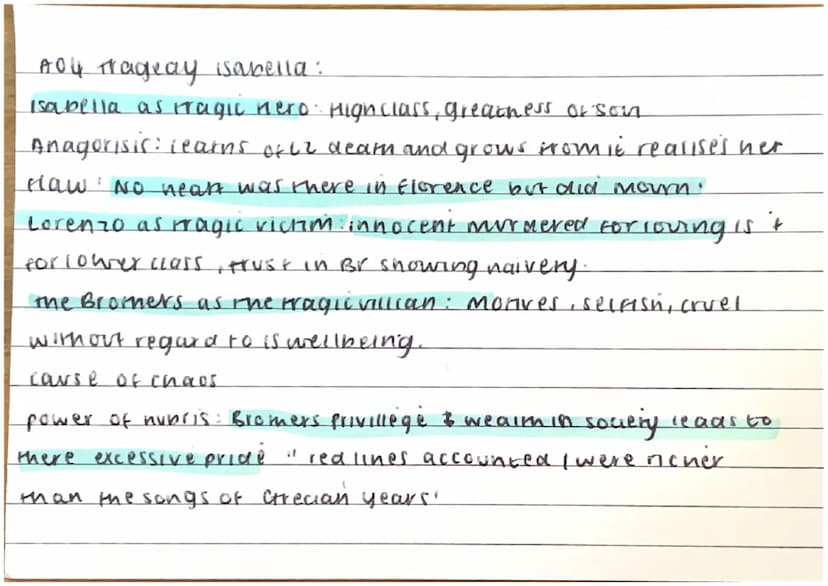 A04 tragedy isabella:
Isabella as tragic hero: High class, greatness of soul
Anagorisis: learns of Lz death and grows from it realises her
flaw: 'No heart was there in Florence but did mourn'
Lorenzo as tragic victim: innocent murdered for loving is +
for lower class, trust in Br showing naivery.
The Brothers as the tragic villian: Motives, selfish, cruel
without regard to is wellbeing.
cause of chaos
power of hubris: Brothers privillege & wealth in society leads to
there excessive pride "red lines accounted / were richer
than the songs of Grecian years'